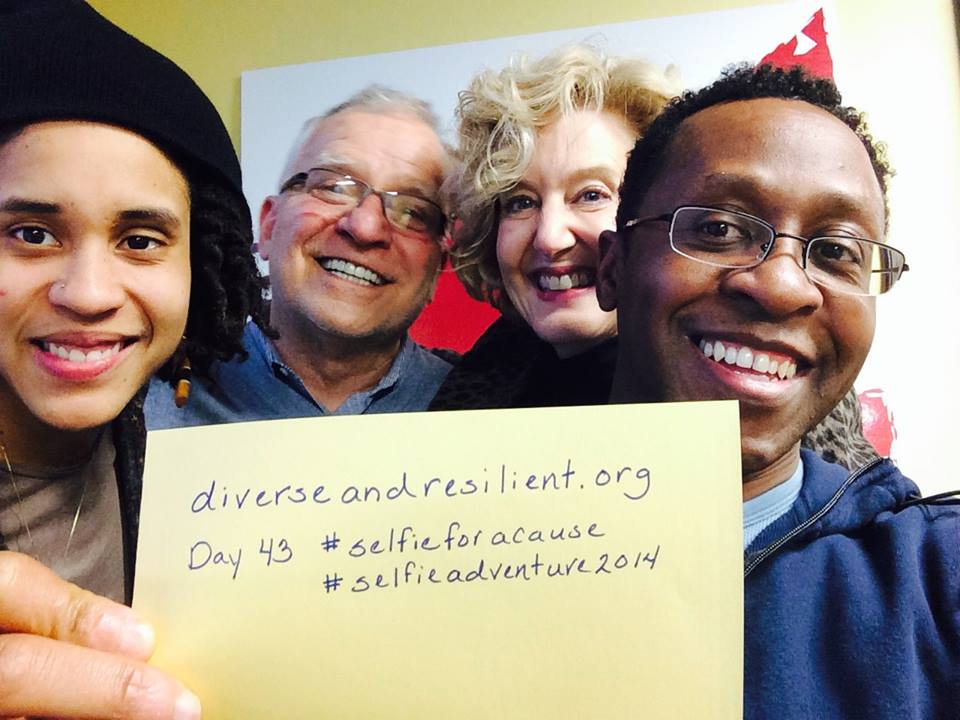 diverseandresilient.org
Day 43 #selfieforacause
#selfieadventure2014